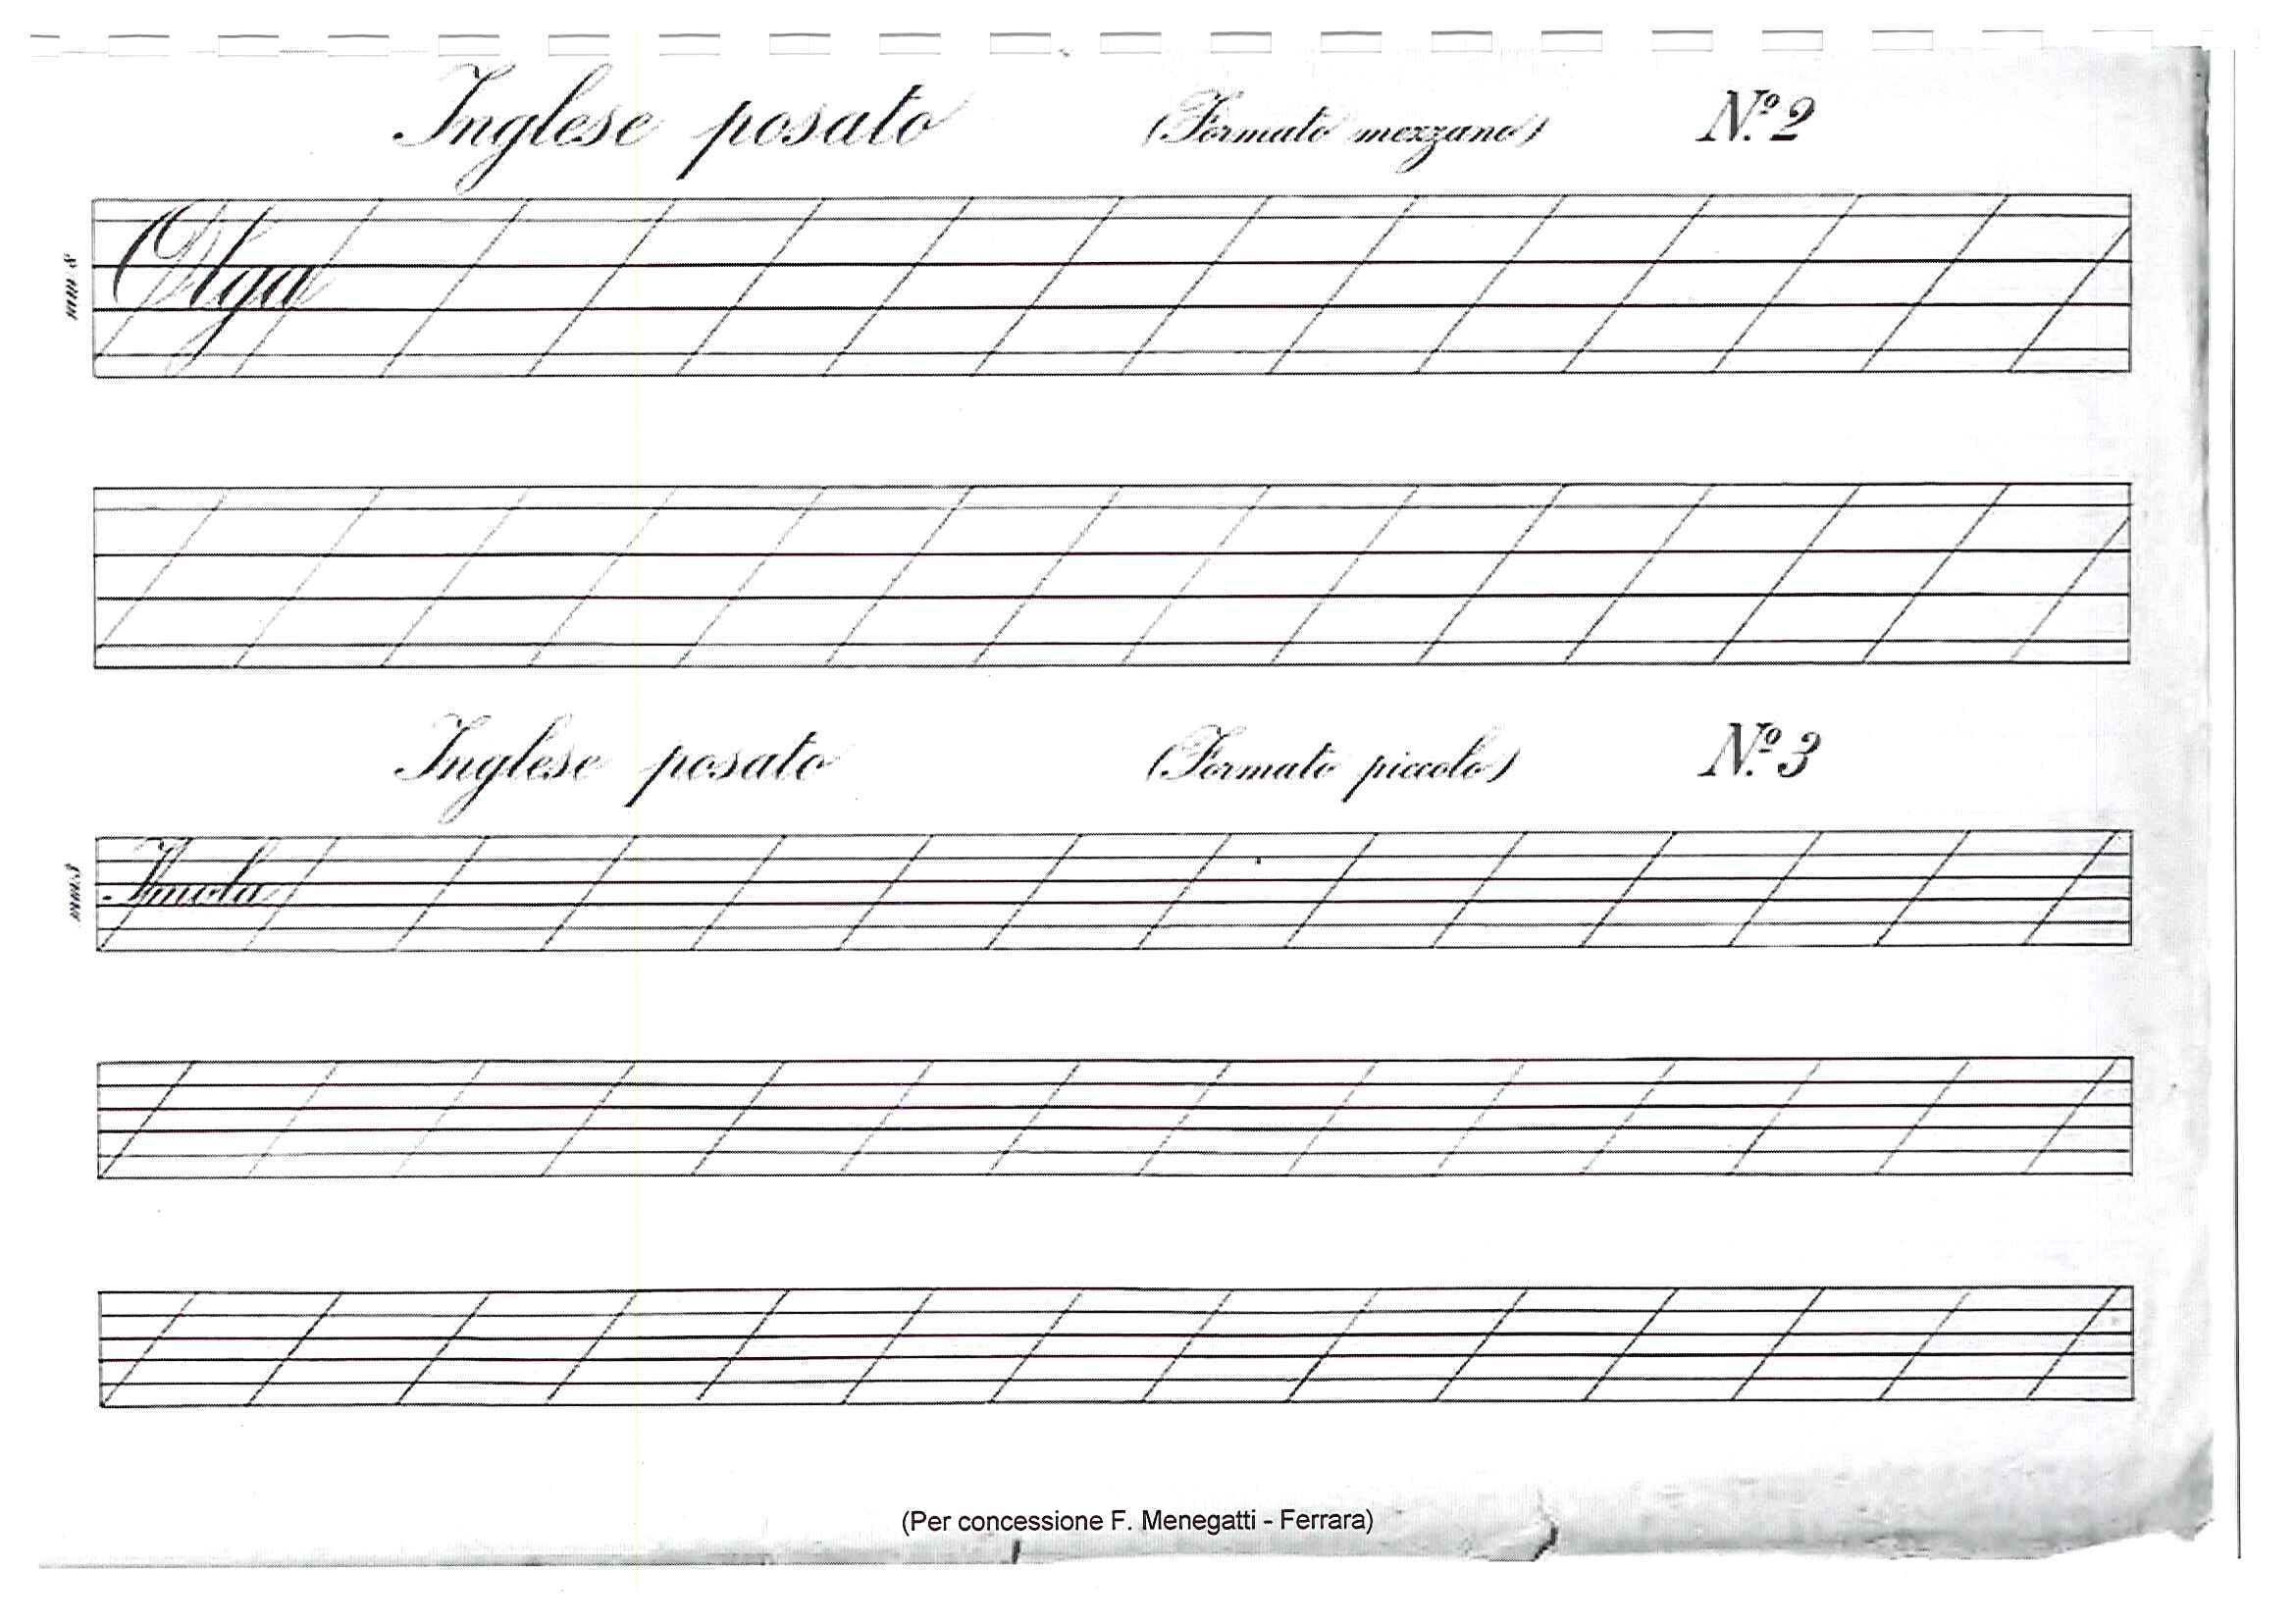 Inglese posato (Formato mezzano) N.º 2
mm 8
Olga
Inglese posato (Formato piccolo) N.º 3
Imola
(Per concessione F. Menegatti - Ferrara)